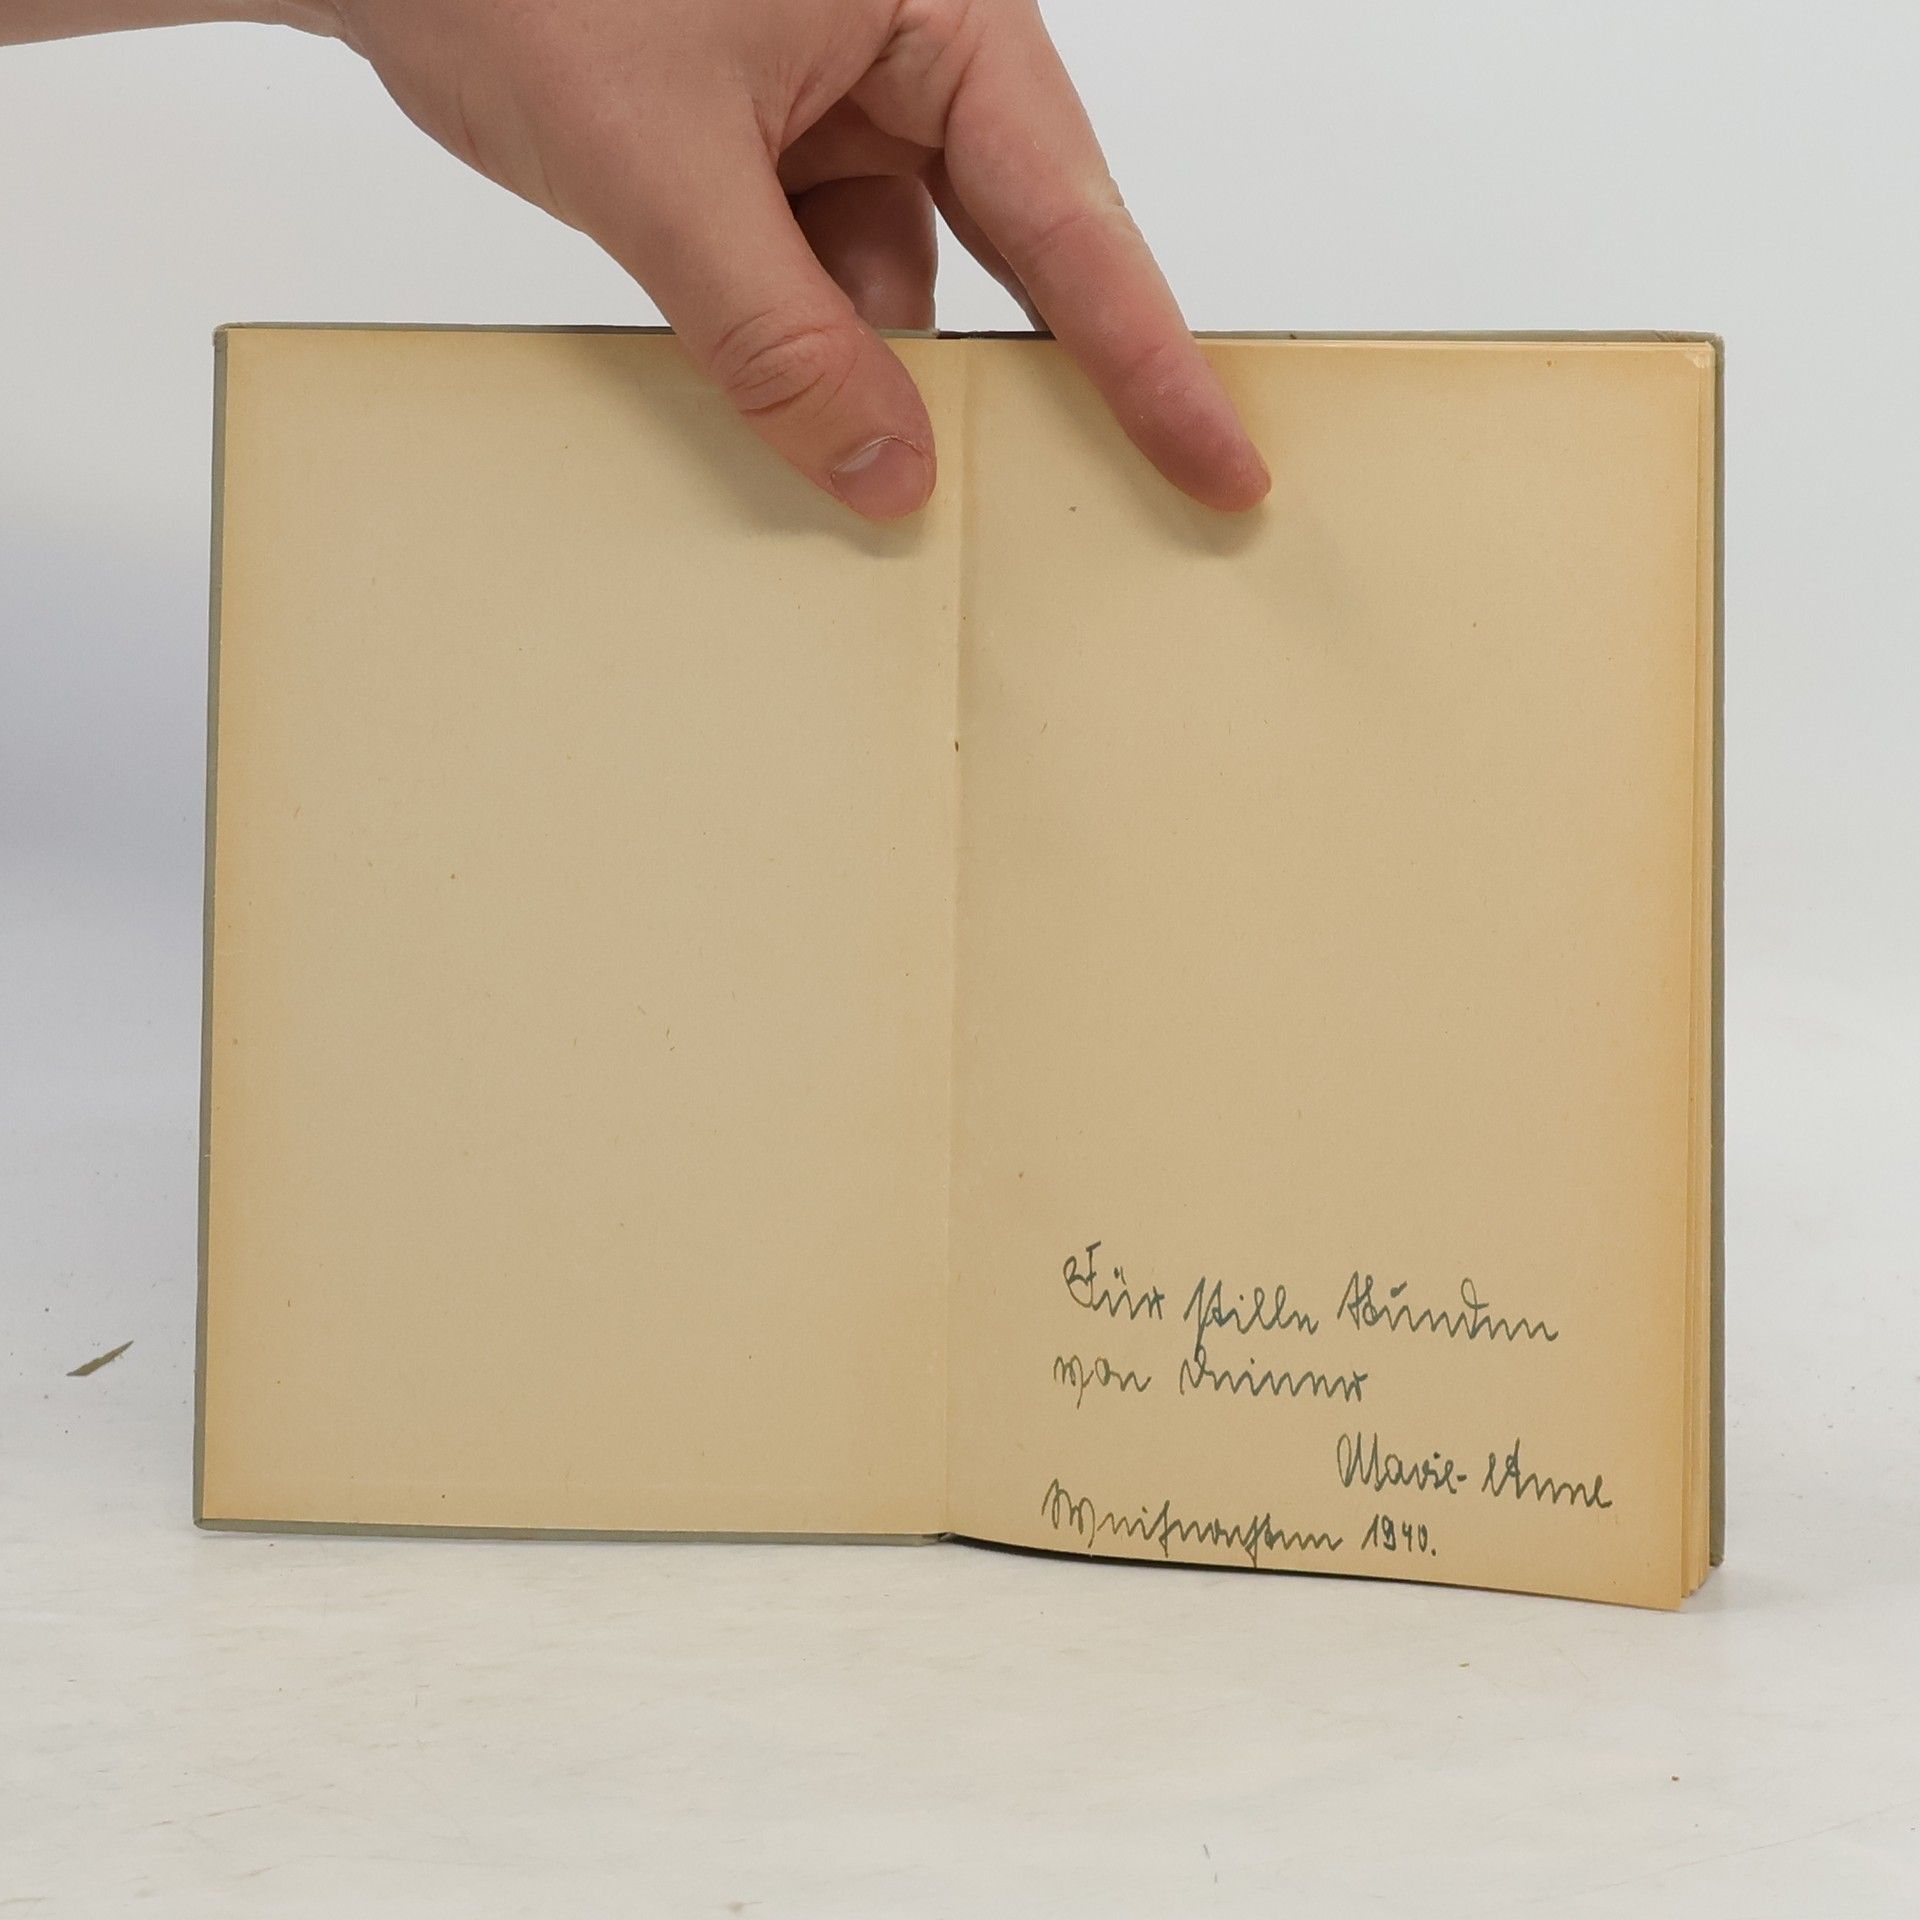 Für stille Stunden
von Deiner
Marie-Anne
Weihnachten 1940.